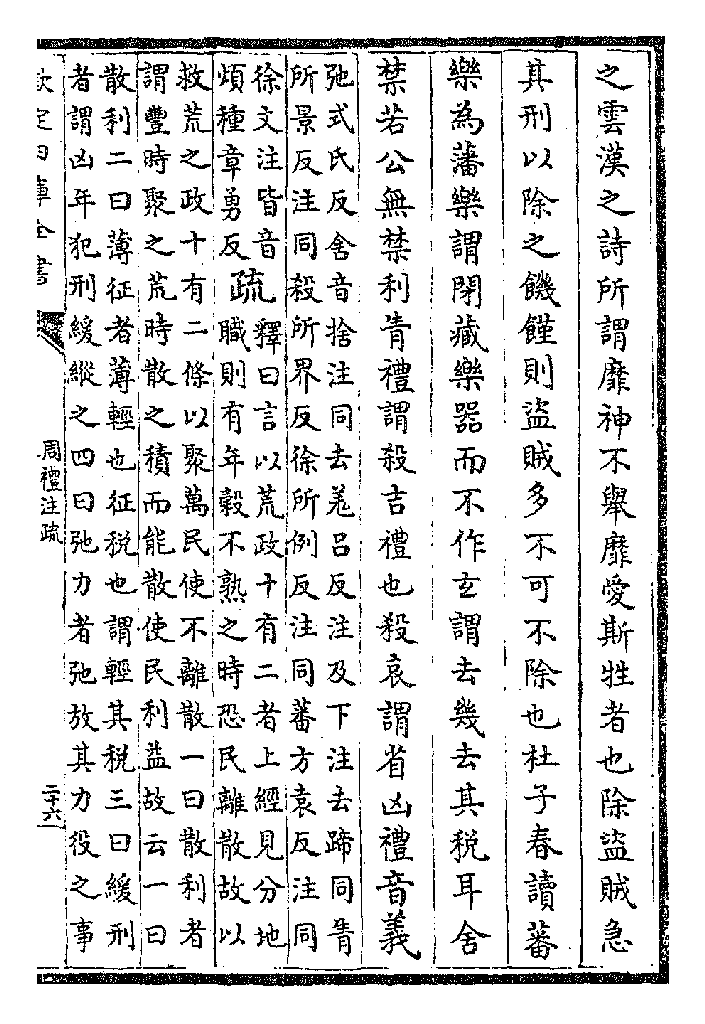 之雲漢之詩所謂靡神不舉靡愛斯牲者也除盜賊急
其刑以除之饑饉則盜賊多不可不除也杜子春讀蕃
樂為藩樂謂閉藏樂器而不作玄謂去幾去其税耳舍
禁若公無禁利眚禮謂殺吉禮也殺哀謂省凶禮音義
弛式氏反舍音捨注同去羗吕反注及下注去蹄同眚
所景反注同殺所界反徐所例反注同蕃方袁反注同
徐文注皆音
煩種章勇反
疏
釋曰言以荒政十有二者上經見分地
職則有年榖不熟之時恐民離散故以
救荒之政十有二條以聚萬民使不離散一曰散利者
謂豐時聚之荒時散之積而能散使民利益故云一曰
散利二曰薄征者薄輕也征税也謂輕其税三曰緩刑
者謂凶年犯刑緩縱之四曰弛力者弛放其力役之事
欽定四庫全書
周禮注疏
二十六